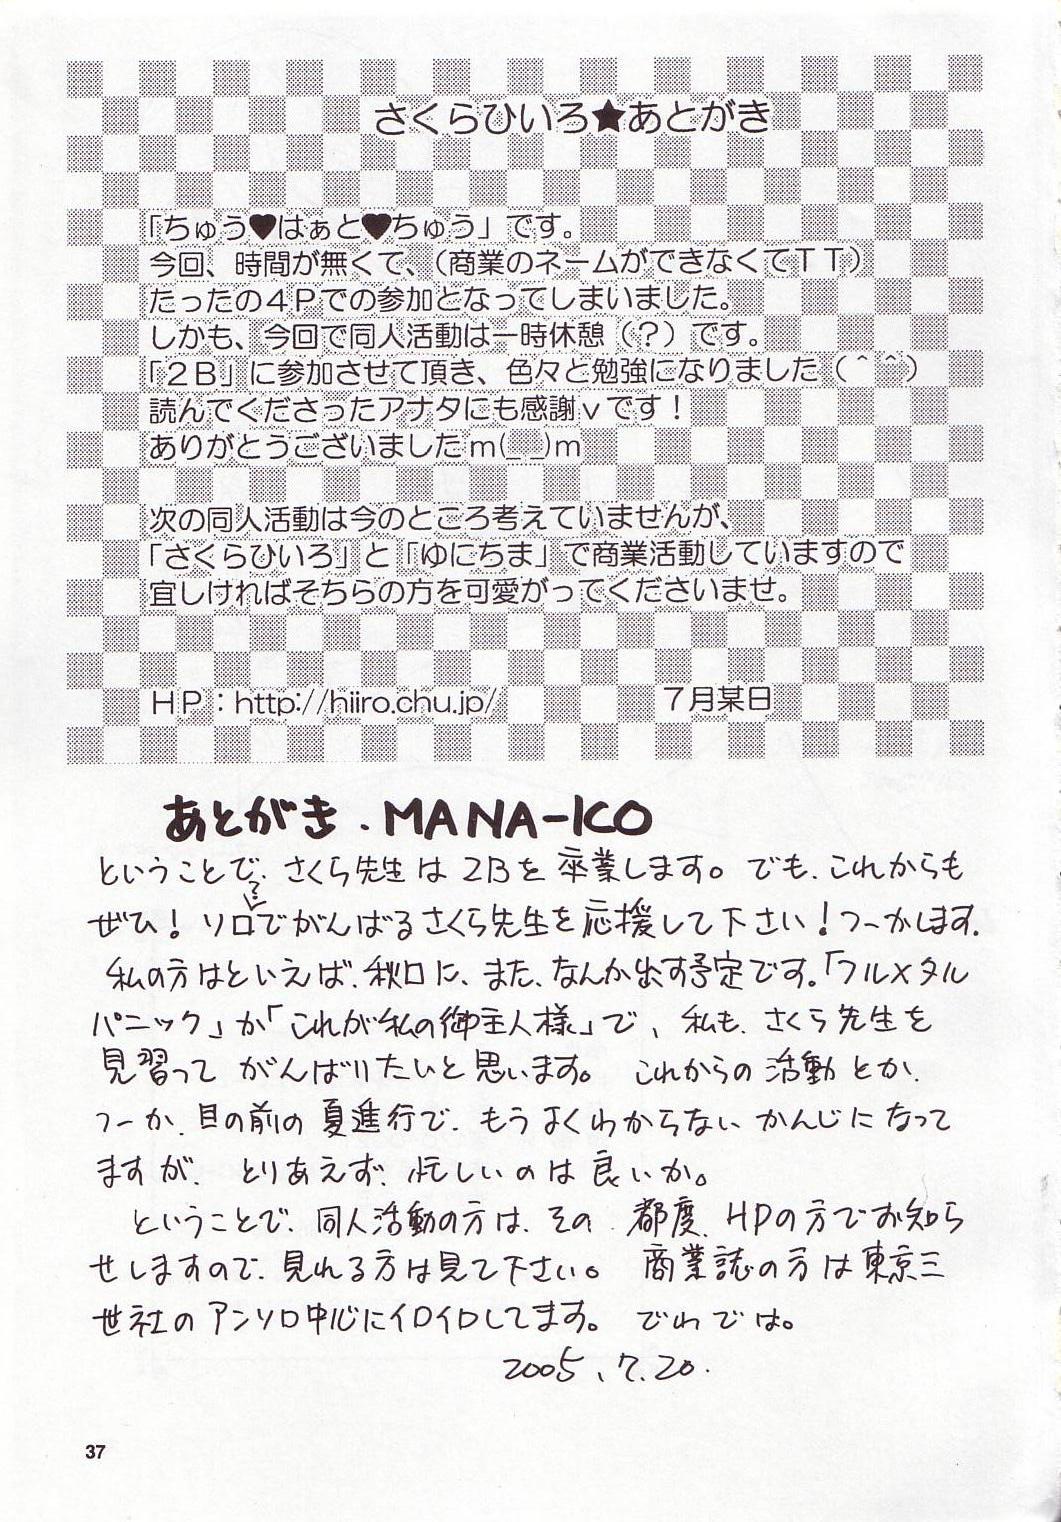 さくらひいろ★あとがき
「ちゅう♥はぁと♥ちゅう」です。
今回、時間が無くて、（商業のネームができなくてＴＴ）
たったの４Ｐでの参加となってしまいました。
しかも、今回で同人活動は一時休憩（？）です。
「２Ｂ」に参加させて頂き、色々と勉強になりました（＾＾）
読んでくださったアナタにも感謝ｖです！
ありがとうございましたm(_ _)m
次の同人活動は今のところ考えていませんが、
「さくらひいろ」と「ゆにちま」で商業活動していますので
宜しければそちらの方を可愛がってくださいませ。
ＨＰ：http://hiiro.chu.jp/　７月某日
あとがき．MANA-ICO
ということで、さくら先生は2Bを卒業します。でも、これからも
?
ぜひ！ソロでがんばるさくら先生を応援して下さい！つーかします．
私の方はといえば、秋口に、また、なんか出す予定です。「フルメタル
パニック」か「これが私の御主人様」で、私も、さくら先生を
見習って がんばりたいと思います。これからの活動とか、
つーか、目の前の夏進行で、もうよくわからないかんじになって
ますが、とりあえず、忙しいのは良いか。
ということで、同人活動の方は、その都度、HPの方でお知ら
せしますので、見れる方は見て下さい。商業誌の方は東京三
世社のアンソロ中心にイロイロしてます。でわでは。
2005．7．20．
37